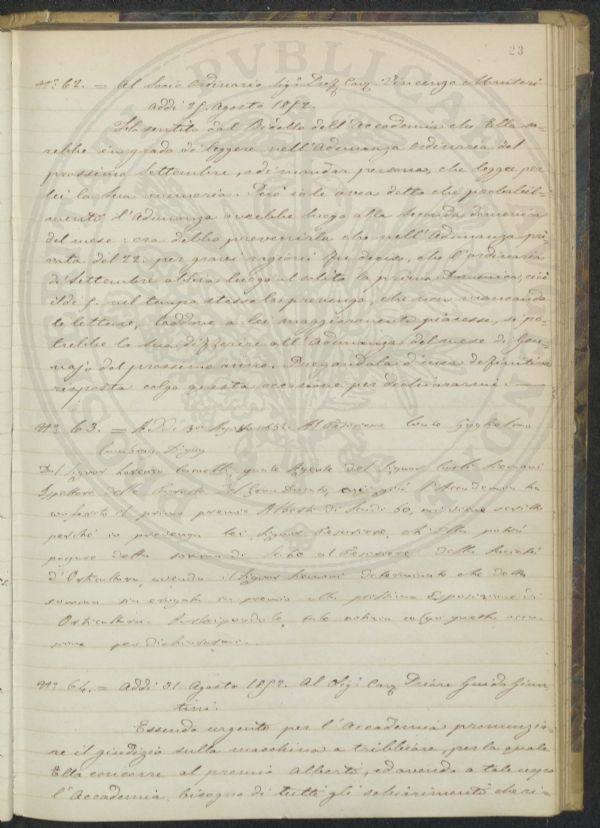 23
N.° 62. = Al Socio Ordinario Sig. Prof. Cav. Vincenzo Manteri
Addì 25 Agosto 1852.
Ho sentito dal Bidello dell'Accademia che Ella sa-
rebbe in grado di leggere nell'Adunanza ordinaria del
prossimo Settembre, o di mandar persona, che legga per
lei la sua memoria. Però io le avea detto che probabil-
mente l'Adunanza avrebbe luogo alla seconda domenica
del mese: ora debbo prevenirla che nell'Adunanza pri-
vata del 22. per gravi ragioni fu deciso, che l'ordinaria
di Settembre abbia luogo al solito la prima Domenica, cioè
il dì 5. nel tempo stesso la prevengo, che non mancando
le letture, laddove a lei maggiormente piacesse, si po-
trebbe la sua differire all'Adunanza del mese di Gen-
najo del prossimo anno. Pregandola d'una definitiva
risposta colgo questa occasione per dichiararmi. —
N.° 63. = Addì Agosto 1852. Al Tesoriere Conte Guglielmo
Digny
Dal Signor Lorenzo quale Agente del Signor
Ispettore delle foreste del Gran Ducato, cui già l'Accademia ha
conferito il primo premio Alberti di Scudi 60, mi viene scritto
perchè io prevenga lei Signor Tesoriere, ch'Ella potrà
pagare detta somma di Sc. 60 al Tesoriere della Società
d'Orticultura, avendo il Signor determinato che detta
somma sia erogata in premio alla prossima Esposizione di
Orticultura. Partecipandole tale notizia colgo questa occa-
sione per dichiararmi.
N.° 64. = Addì 31 Agosto 1852. Al Sig. Cav. Priore Guido Gian-
tini.
Essendo urgente per l'Accademia pronunzia-
re il giudizio sulla macchina a tribbiare, per la quale
Ella concorre al premio Alberti, ed avendo a tale uopo
l'Accademia bisogno di tutti gli schiarimenti che ri-